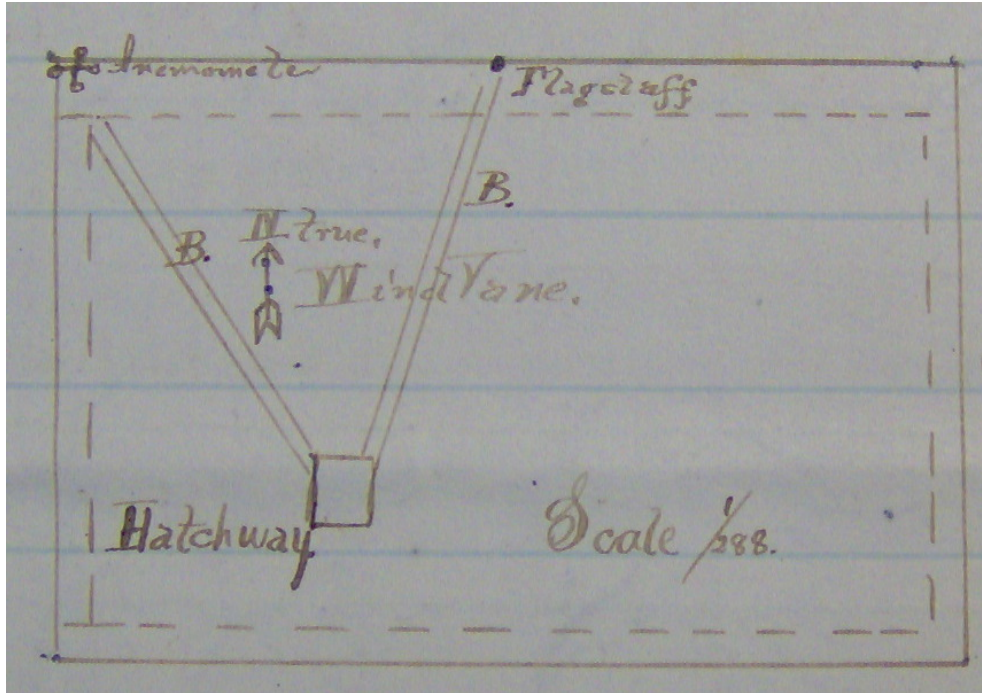 Anemometer
Flagstaff
B.
N true.
B.
Wind Vane.
Hatchway
Scale 1/288.